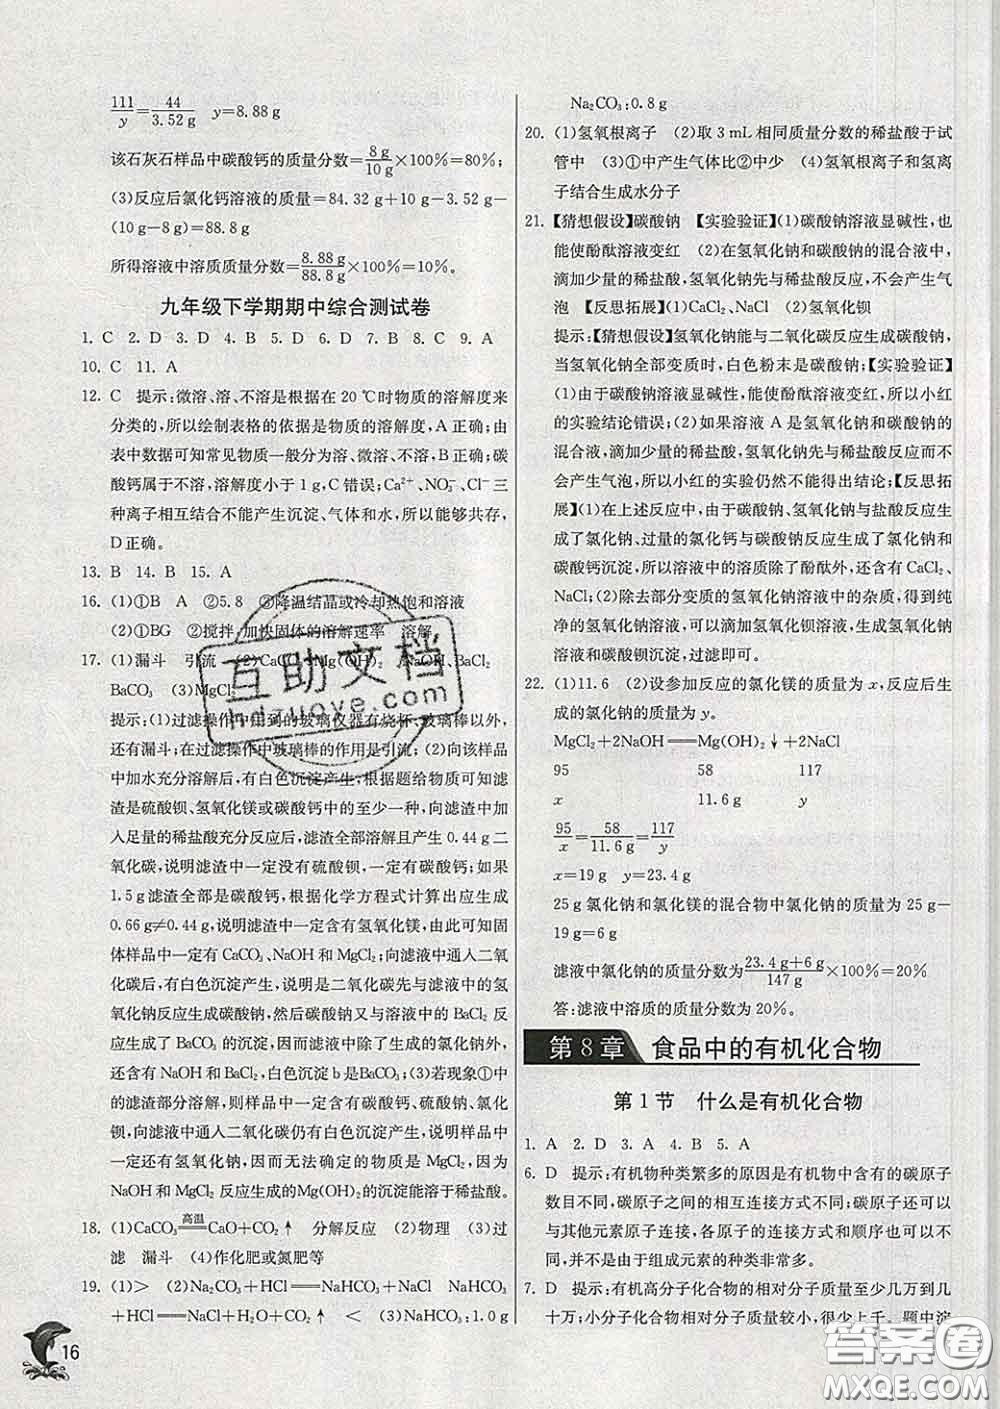 111/y=44/3.52 g　y=8.88 g
该石灰石样品中碳酸钙的质量分数=8 g/10 g×100%=80%;
(3)反应后氯化钙溶液的质量=84.32 g+10 g-3.52 g-
(10 g-8 g)=88.8 g
所得溶液中溶质质量分数=8.88 g/88.8 g×100%=10%。
九年级下学期期中综合测试卷
1. C　2. D　3. D　4. B　5. D　6. D　7. B　8. C　9. A
10. C　11. A
12. C　提示:微溶、溶、不溶是根据在 20 ℃时物质的溶解度来
分类的,所以绘制表格的依据是物质的溶解度,A正确;由
表中数据可知常见物质一般分为溶、微溶、不溶,B正确;碳
酸钙属于不溶,溶解度小于1 g,C错误;Ca²⁺、NO₃⁻、Cl⁻三
种离子相互结合不能产生沉淀、气体和水,所以能够共存,
D正确。
13. B　14. B　15. A
16. (1)①B　A　②5.8　③降温结晶或冷却热饱和溶液
(2)①BG　②搅拌,加快固体的溶解速率　溶解
17. (1)漏斗　引流　(2)CaCO₃、Mg(OH)₂　NaOH、BaCl₂
BaCO₃　(3)MgCl₂
提示:(1)过滤操作中用到的玻璃仪器有烧杯、玻璃棒以外,
还有漏斗;在过滤操作中玻璃棒的作用是引流;(2)向该样品
中加水充分溶解后,有白色沉淀产生,根据题给物质可知滤
渣是硫酸钡、氢氧化镁或碳酸钙中的至少一种,向滤渣中加
入足量的稀盐酸充分反应后,滤渣全部溶解且产生0.44 g二
氧化碳,说明滤渣中一定没有硫酸钡,一定有碳酸钙;如果
1.5 g滤渣全部是碳酸钙,根据化学方程式计算出应生成
0.66 g≠0.44 g,说明滤渣中一定含有氢氧化镁,由此可知固
体样品中一定有CaCO₃、NaOH和MgCl₂;向滤液中通入二氧
化碳后,有白色沉淀产生,说明是二氧化碳先与滤液中的氢
氧化钠反应生成碳酸钠,然后碳酸钠又与溶液中的BaCl₂反
应生成了BaCO₃的沉淀,因而滤液中的溶质除氯化钠外,还有
NaOH和BaCl₂,白色沉淀b是BaCO₃;(3)若现象①中的滤
渣部分溶解,则样品中一定含有硫酸镁、碳酸钙、氯化
钡,向滤液中通人二氧化碳仍有白色沉淀产生,样品中一定还
有氢氧化钠,因而无法确定的物质是MgCl₂,因为
BaCl₂、NaOH与MgCl₂产生的Mg(OH)₂的沉淀能溶于盐酸。
18. (1)CaCO₃=高温=CaO+CO₂↑　分解反应　(2)物理　(3)过
滤　漏斗　(4)作化肥或氮肥等
19. (1)>　(2)Na₂CO₃+HCl══NaHCO₃+NaCl　NaHCO₃
+HCl══NaCl+H₂O+CO₂↑　<　(3)NaHCO₃:1.0 g
16
Na₂CO₃:0.8 g
20. (1)氢氧根离子　(2)取3 mL相同质量分数的稀盐酸于试
管中　(3)①中产生气体比②中少　(4)氢氧根离子和氢离
子结合生成水分子
21. 【猜想假设】碳酸钠　【实验验证】(1)碳酸钠溶液显碱性,也
能使酚酞溶液变红　(2)在氢氧化钠和碳酸钠的混合液中,
滴加少量的稀盐酸,氢氧化钠先与稀盐酸反应,不会产生气
泡　【反思拓展】(1)CaCl₂、NaCl　(2)氢氧化钡
提示:【猜想假设】氢氧化钠能与二氧化碳反应生成碳酸钠,
当氢氧化钠全部变质时,白色粉末是碳酸钠;【实验验证】
(1)由于碳酸钠溶液显碱性,能使酚酞溶液变红,所以小红
的实验结论错误;(2)如果溶液A是氢氧化钠和碳酸钠的
混合液,滴加少量的稀盐酸,氢氧化钠先与稀盐酸反应而不
产生气泡,所以小红的实验仍然不能得出结论;【反思拓
展】(1)在上述反应中,碳酸钠、氢氧化钠与盐酸反应生成
了氯化钠、过量的氯化钙与碳酸钠反应生成了氯化钠和碳
酸钙沉淀,所以滤液中除了酚酞外,还含有CaCl₂和
NaCl;(2)除去部分变质的氢氧化钠溶液中的杂质,得到纯
净的氢氧化钠溶液,可以滴加氢氧化钡溶液,生成氢氧化
钠和碳酸钡沉淀,过滤即可。
22. (1)11.6　(2)设参加反应的氯化镁的质量为x,反应后生
成的氯化钠的质量为y。
MgCl₂+2NaOH══Mg(OH)₂↓+2NaCl
95　58　117
x　11.6 g　y
95/x=58/11.6 g=117/y
x=19 g　y=23.4 g
25 g氯化钠和氯化镁的混合物中氯化钠的质量为25 g-
19 g=6 g
滤液中氯化钠的质量分数为23.4 g+6 g/147 g×100%=20%
答:滤液中溶质的质量分数为20%。
第8章　食品中的有机化合物
第1节　什么是有机化合物
1. A　2. D　3. A　4. B　5. A
6. D　提示:有机物种类繁多的原因是有机物中含有的碳原子
数目不同,碳原子之间的相互连接方式不同;碳原子还可以
与其他元素原子连接,各原子的连接方式和顺序也可以不
同,并不是由于组成元素的种类非常多。
7. D　提示:有机高分子化合物的相对分子质量至少几万到几
十万;小分子化合物相对分子质量较小,很少上千。题中淀
互助文档
hdzuowe.com
答案圈
MXQE.COM